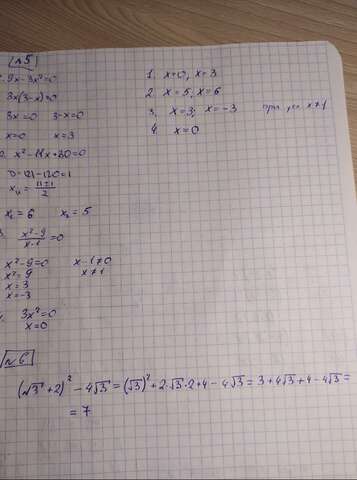 №5
1. 9x - 3x² = 0
3x(3 - x) = 0
3x = 0   3 - x = 0
x = 0   x = 3
2. x² - 11x + 30 = 0
D = 121 - 120 = 1
x₁,₂ = (11 ± 1)/2
x₁ = 6   x₂ = 5
3. (x² - 9)/(x - 1) = 0
x² - 9 = 0   x - 1 ≠ 0
x² = 9   x ≠ 1
x = 3
x = -3
4. 3x² = 0
x = 0
1. x = 0, x = 3
2. x = 5, x = 6
3. x = 3; x = -3   при усл x ≠ 1
4. x = 0
№6
(√3 + 2)² - 4√3 = (√3)² + 2·√3·2 + 4 - 4√3 = 3 + 4√3 + 4 - 4√3 =
= 7